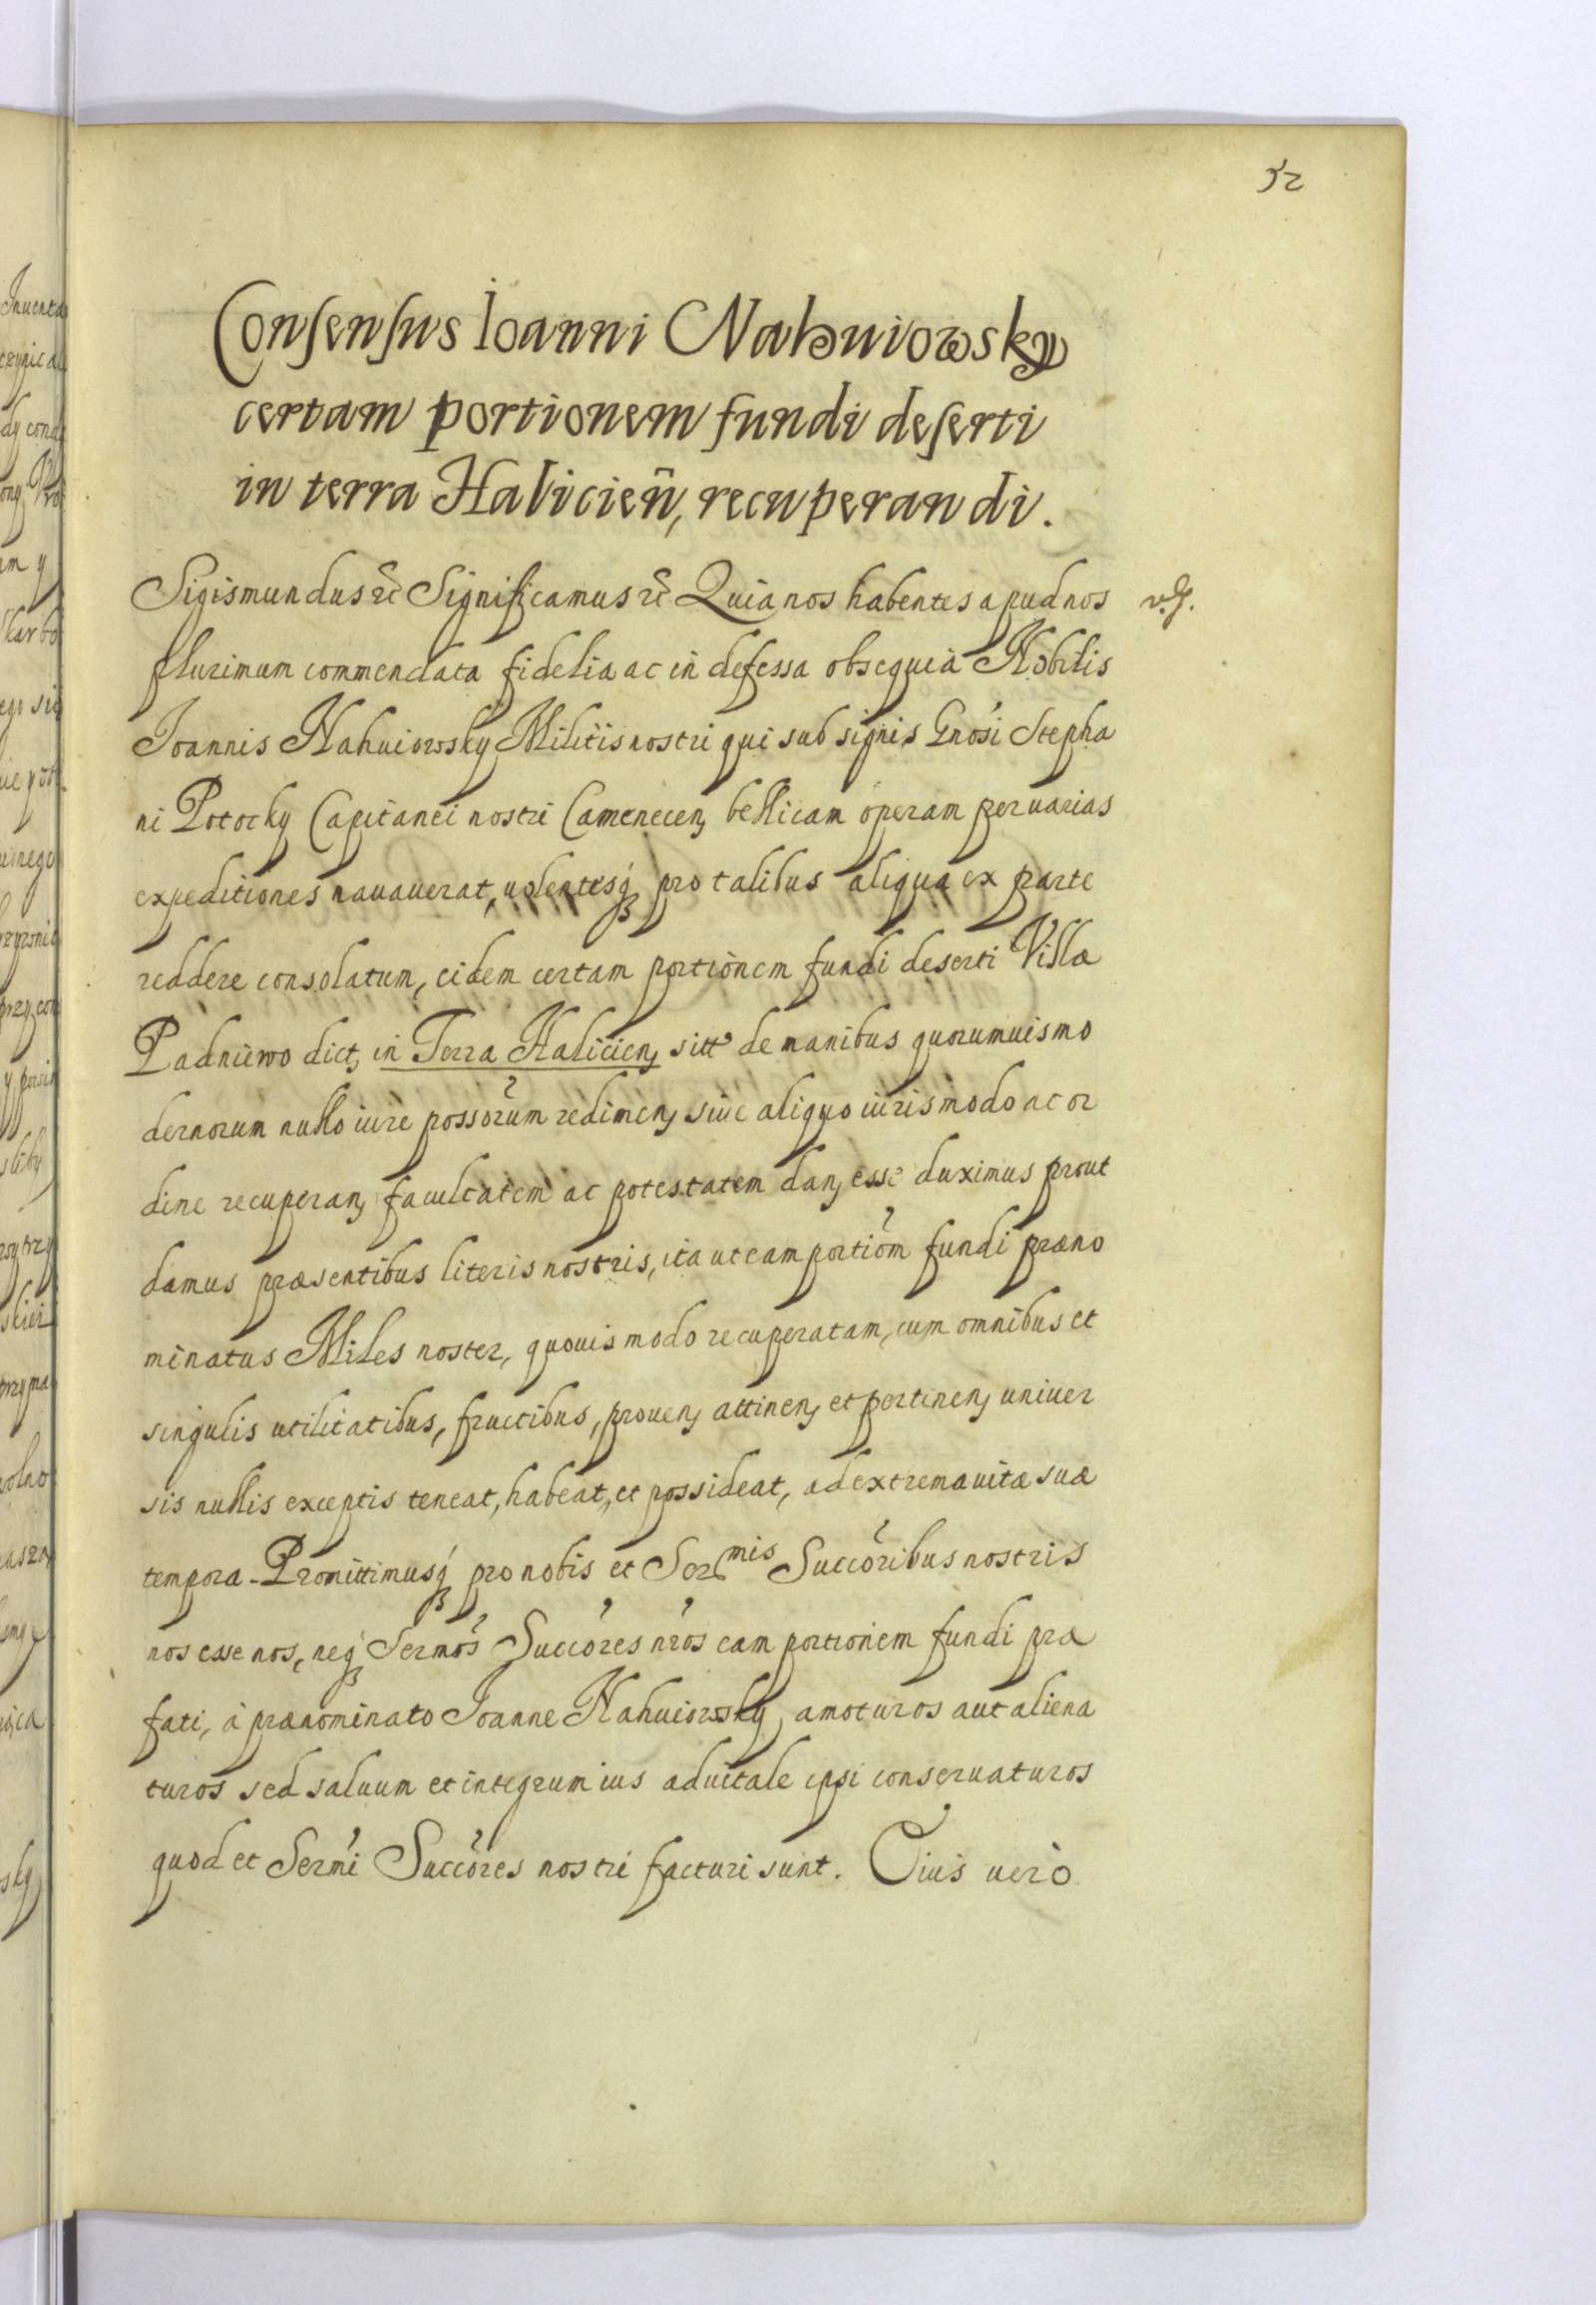 52
Consensus Ioanni Nahuiowsky
certam portionem fundi deserti
in terra Halicien̄, recuperandi.
Sigismundus ꝛc̄ Significamus ꝛc̄ Quia nos habentes apud nos
plurimum commendata fidelia ac indefessa obsequia Nobilis
Ioannis Nahuiowsky Militis nostri qui sub signis Gnosi Stepha
ni Potocky Capitanei nostri Camenecen, bellicam operam per uarias
expeditiones nauauerat, uolentesq́ pro talibus aliqua ex parte
reddere consolatum, eidem certam portionem fundi deserti Villæ
Padniewo dict, in Terra Halicien, sitt de manibus quorumuis mo
dernorum nullo iure possorum redimen, siue aliquo iuris modo ac or
dine recuperan, facultatem ac potestatem dan, esse duximus prout
damus præsentibus literis nostris, ita ut eam portiom fundi præno
minatus Miles noster, quouis modo recuperatam, cum omnibus et
singulis utilitatibus, fructibus, prouen, attinen, et pertinen, uniuer
sis nullis exceptis teneat, habeat, et possideat, ad extrema uitæ suæ
tempora. Promittimusq́ pro nobis et Ser mis Succoribus nostris
nos esse nos, neq́ Sermos Succores nros eam portionem fundi præ
fati, à prænominato Ioanne Nahuiowsky, amoturos aut aliena
turos sed saluum et integrum ius aduitale ipsi conseruaturos
quod et Sermi Succores nostri facturi sunt. Cuius uerò